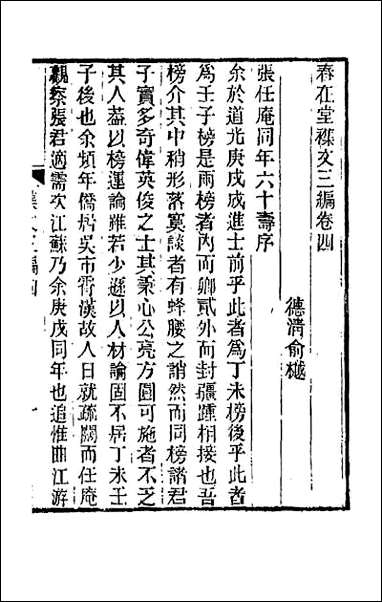 春在堂襍文三編卷四
德清俞樾
張任庵同年六十壽序
余於道光庚戌成進士前乎此者爲丁未榜後乎此者
爲壬子榜是兩榜者內而卿貳外而封疆踵相接也吾
榜介其中稍形落寞談者有蜂腰之誚然而同榜諸君
子實多奇偉英俊之士其秉心公亮方圓可施者不乏
其人葢以榜運論雖若少遜以人材論固不居丁未壬
子後也余頻年僑居吳市霄漢故人日就疏闊而任庵
觀察張君適需次江蘇乃余庚戌同年也追惟曲江游